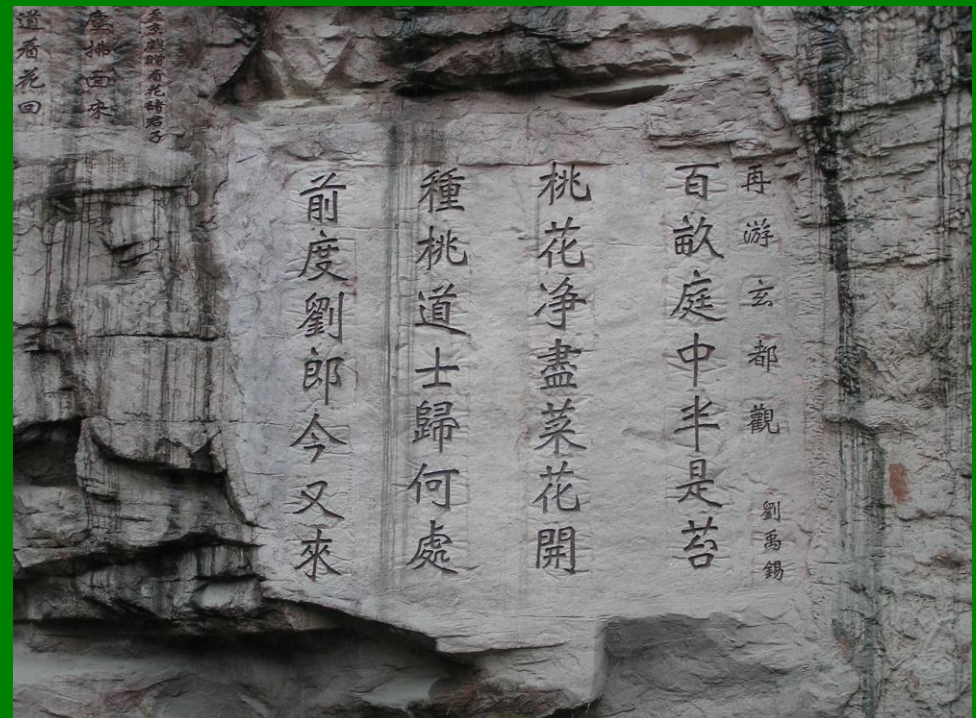 再游玄都觀 劉禹錫
百畝庭中半是苔
桃花净盡菜花開
種桃道士歸何處
前度劉郎今又來
至京戲贈看花諸君子
塵拂面來
道看花回